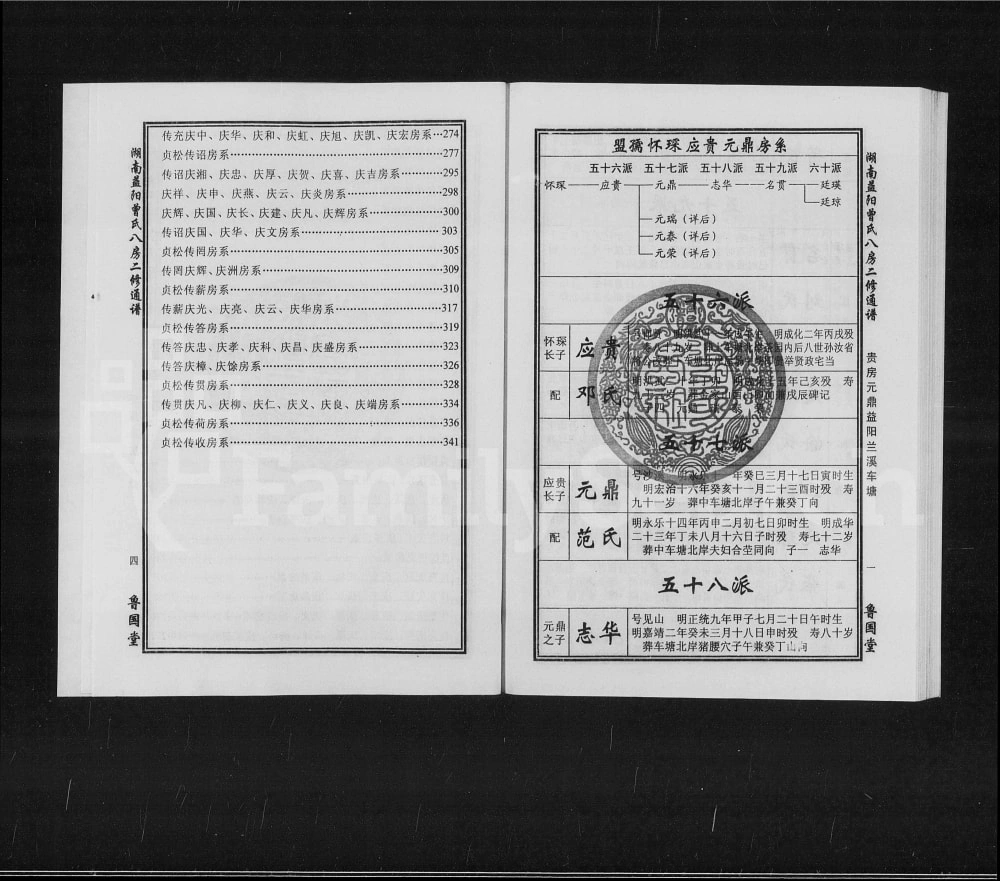 湖南益阳曾氏八房二修通谱
四
鲁国堂
传充庆中、庆华、庆和、庆虹、庆旭、庆凯、庆宏房系…274
贞松传诏房系…277
传诏庆湘、庆忠、庆厚、庆贺、庆喜、庆吉房系…295
庆祥、庆申、庆燕、庆云、庆炎房系…298
庆辉、庆国、庆长、庆建、庆凡、庆辉房系…300
传诏庆国、庆华、庆文房系…303
贞松传罔房系…305
传罔庆辉、庆洲房系…309
贞松传薪房系…310
传薪庆光、庆亮、庆云、庆华房系…317
贞松传答房系…319
传答庆忠、庆孝、庆科、庆昌、庆盛房系…323
传答庆樟、庆馀房系…326
贞松传贯房系…328
传贯庆凡、庆柳、庆仁、庆义、庆良、庆端房系…334
贞松传荷房系…336
贞松传收房系…341
盟孺怀琛应贵元鼎房系
五十六派 五十七派 五十八派 五十九派 六十派
怀琛 应贵 元鼎 志华 名贯 廷瑛
廷琼
元瑞（详后）
元泰（详后）
元荣（详后）
五十六派
怀琛长子 应贵
明成化二年丙戌殁
内后八世孙汝省
举贤政宅当
配 邓氏
五年己亥殁 寿
戊辰碑记
五十七派
应贵长子 元鼎
年癸巳三月十七日寅时生
明宏治十六年癸亥十一月二十三酉时殁 寿
九十一岁 葬中车塘北岸子午兼癸丁向
配 范氏
明永乐十四年丙申二月初七日卯时生 明成华
二十三年丁未八月十六日子时殁 寿七十二岁
葬中车塘北岸夫妇合茔同向 子一 志华
五十八派
元鼎之子 志华
号见山 明正统九年甲子七月二十日午时生
明嘉靖二年癸未三月十八日申时殁 寿八十岁
葬车塘北岸猪腰穴子午兼癸丁山向
湖南益阳曾氏八房二修通谱
贵房元鼎益阳兰溪车塘
一
鲁国堂